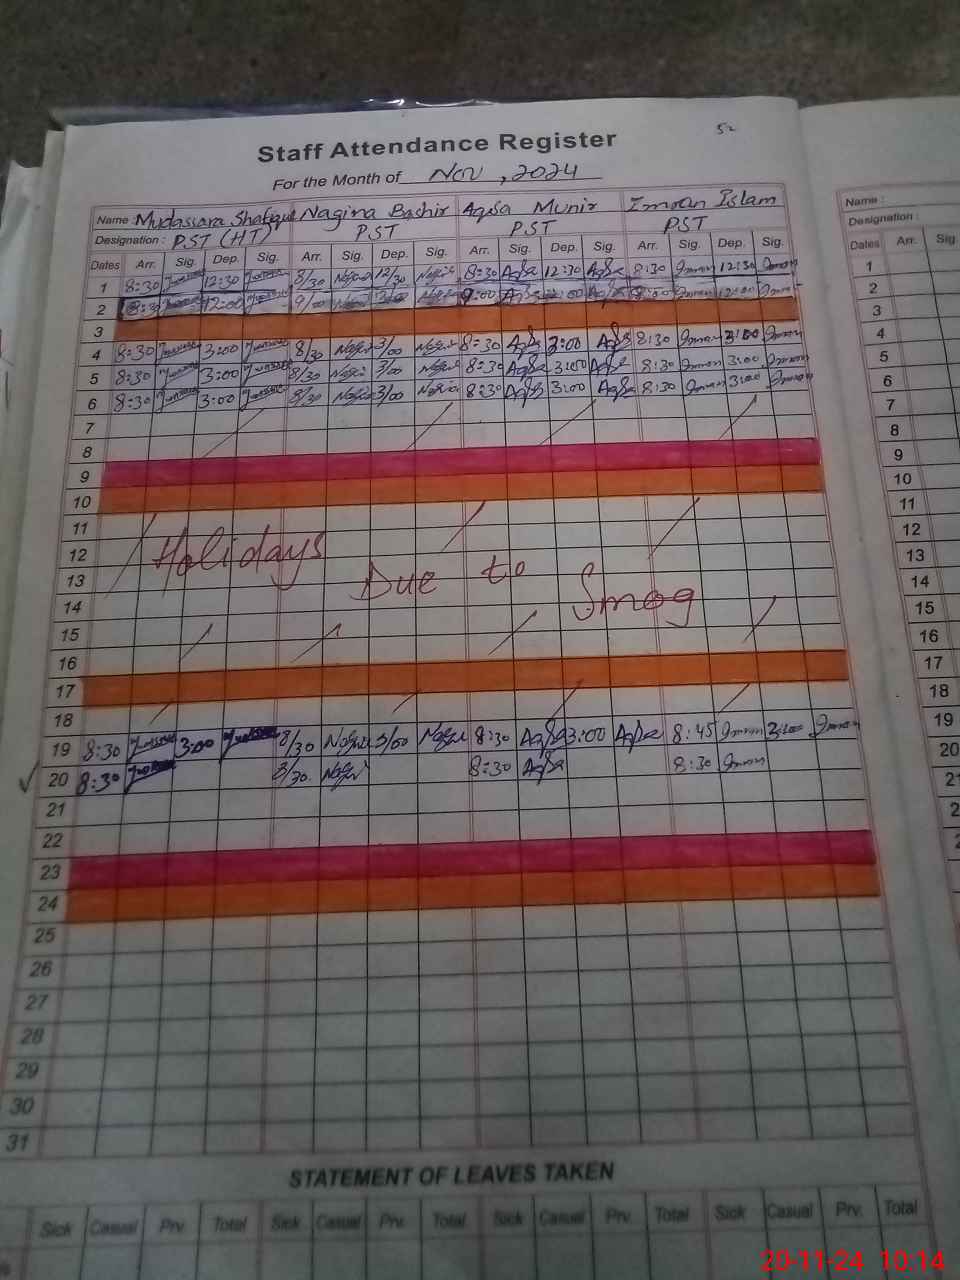 52
Staff Attendance Register
For the Month of Nov , 2024
Name : Mudassara Shafique Nagina Bashir Aqsa Munir Imran Islam
Designation : PST (HT) PST PST PST
Dates Arr. Sig. Dep. Sig. Arr. Sig. Dep. Sig. Arr. Sig. Dep. Sig. Arr. Sig. Dep. Sig.
1 8:30 12:30 8/30 Nagina 12/30 Nagina 8:30 Aqsa 12:30 Aqsa 8:30 Imran 12:30 Imran
2 8:30 12:00 9/00 9:00 Aqsa 12:00 Aqsa Imran 12:00 Imran
3
4 8:30 3:00 8/30 Nagina 3/00 Nagina 8:30 Aqsa 3:00 Aqsa 8:30 Imran 3:00 Imran
5 8:30 3:00 8/30 Nagina 3/00 Nagina 8:30 Aqsa 3:00 Aqsa 8:30 Imran 3:00 Imran
6 8:30 3:00 8/30 Nagina 3/00 Nagina 8:30 Aqsa 3:00 Aqsa 8:30 Imran 3:00 Imran
7
8
9
10
11
12 Holidays Due to Smog
13
14
15
16
17
18
19 8:30 3:00 8/30 Nagina 3/00 Nagina 8:30 Aqsa 3:00 Aqsa 8:45 Imran 3:00 Imran
20 8:30 8/30 Nagina 8:30 Aqsa 8:30 Imran
21
22
23
24
25
26
27
28
29
30
31
STATEMENT OF LEAVES TAKEN
Sick Casual Prv. Total Sick Casual Prv. Total Sick Casual Prv. Total Sick Casual Prv. Total
Name :
Designation :
Dates Arr. Sig
1
2
3
4
5
6
7
8
9
10
11
12
13
14
15
16
17
18
19
20
21
20-11-24 10:14